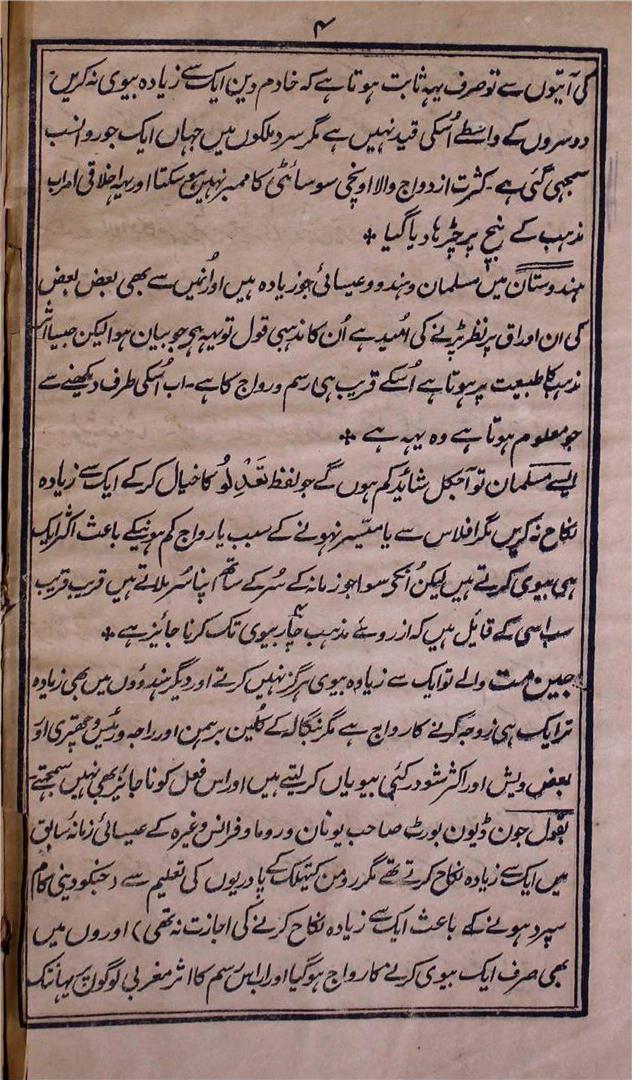 ۴
کی آیتوں سے تو صرف یہہ ثابت ہوتا ہے کہ خادم دین ایک سے زیادہ بیوی نہ کریں
دوسروں کے واسطے اُسکی قید نہیں ہے مگر سرد ملکوں میں جہاں ایک جورو انسب
سمجہی گئی ہے۔ کثرت ازدواج والا اونچی سوسائٹی کا ممبر نہیں ہوسکتا اور یہہ اخلاقی امر اب
مذہب کے نیچ پر چڑہا دیا گیا ٭
ہندوستان میں مسلمان و ہندو و عیسائی جو زیادہ ہیں اور اُنہیں سے بھی بعض بعض
کی ان اوراق پر نظر پڑنے کی اُمید ہے اُن کا مذہبی قول تو یہہ ہے جو بیان ہوا لیکن جیسا اثر
مذہب کا طبیعت پر ہوتا ہے اُسکے قریب ہی رسم و رواج کا ہے۔ اب اُسکی طرف دیکھنے سے
جو معلوم ہوتا ہے وہ یہہ ہے ٭
ایسے مسلمان تو آجکل شائد کم ہوں گے جو لفظ تَعْدِلُو کا خیال کرکے ایک سے زیادہ
نکاح نہ کریں مگر افلاس سے یا میسّر نہونے کے سبب یا رواج کم ہونیکے باعث اکثر ایک
ہی بیوی کرتے ہیں لیکن اُنکی سوا جو زمانہ کے سُر کے ساتھ اپنا سُر ملاتے ہیں قریب قریب
سب اسی کے قایل ہیں کہ از روے مذہب چار بیوی تک کرنا جایز ہے ٭
جین مت والے تو ایک سے زیادہ بیوی ہرگز نہیں کرتے اور دیگر ہندوؤں میں بھی زیادہ
تر ایک ہی زوجہ کرنے کا رواج ہے مگر بنگالہ کے کُلین برہمن اور راجہ و رئیس و چھتری او
بعض ویش اور اکثر شودر کئی بیویاں کرلیتے ہیں اور اس فعل کو ناجائز بھی نہیں سمجھتے۔
بقول جون ڈیون پورٹ صاحب یونان و روما و فرانس وغیرہ کے عیسائی زمانہ سابق
میں ایک سے زیادہ نکاح کرتے تھے مگر رومن کیتھلک کے پادریوں کی تعلیم سے (جنکو دینی کام
سپرد ہونے کے باعث ایک سے زیادہ نکاح کرنے کی اجازت نہ تھی) اوروں میں
بھی صرف ایک بیوی کرنے کا رواج ہوگیا اور اب اس رسم کا اثر مغربی لوگوں پر یہانتک